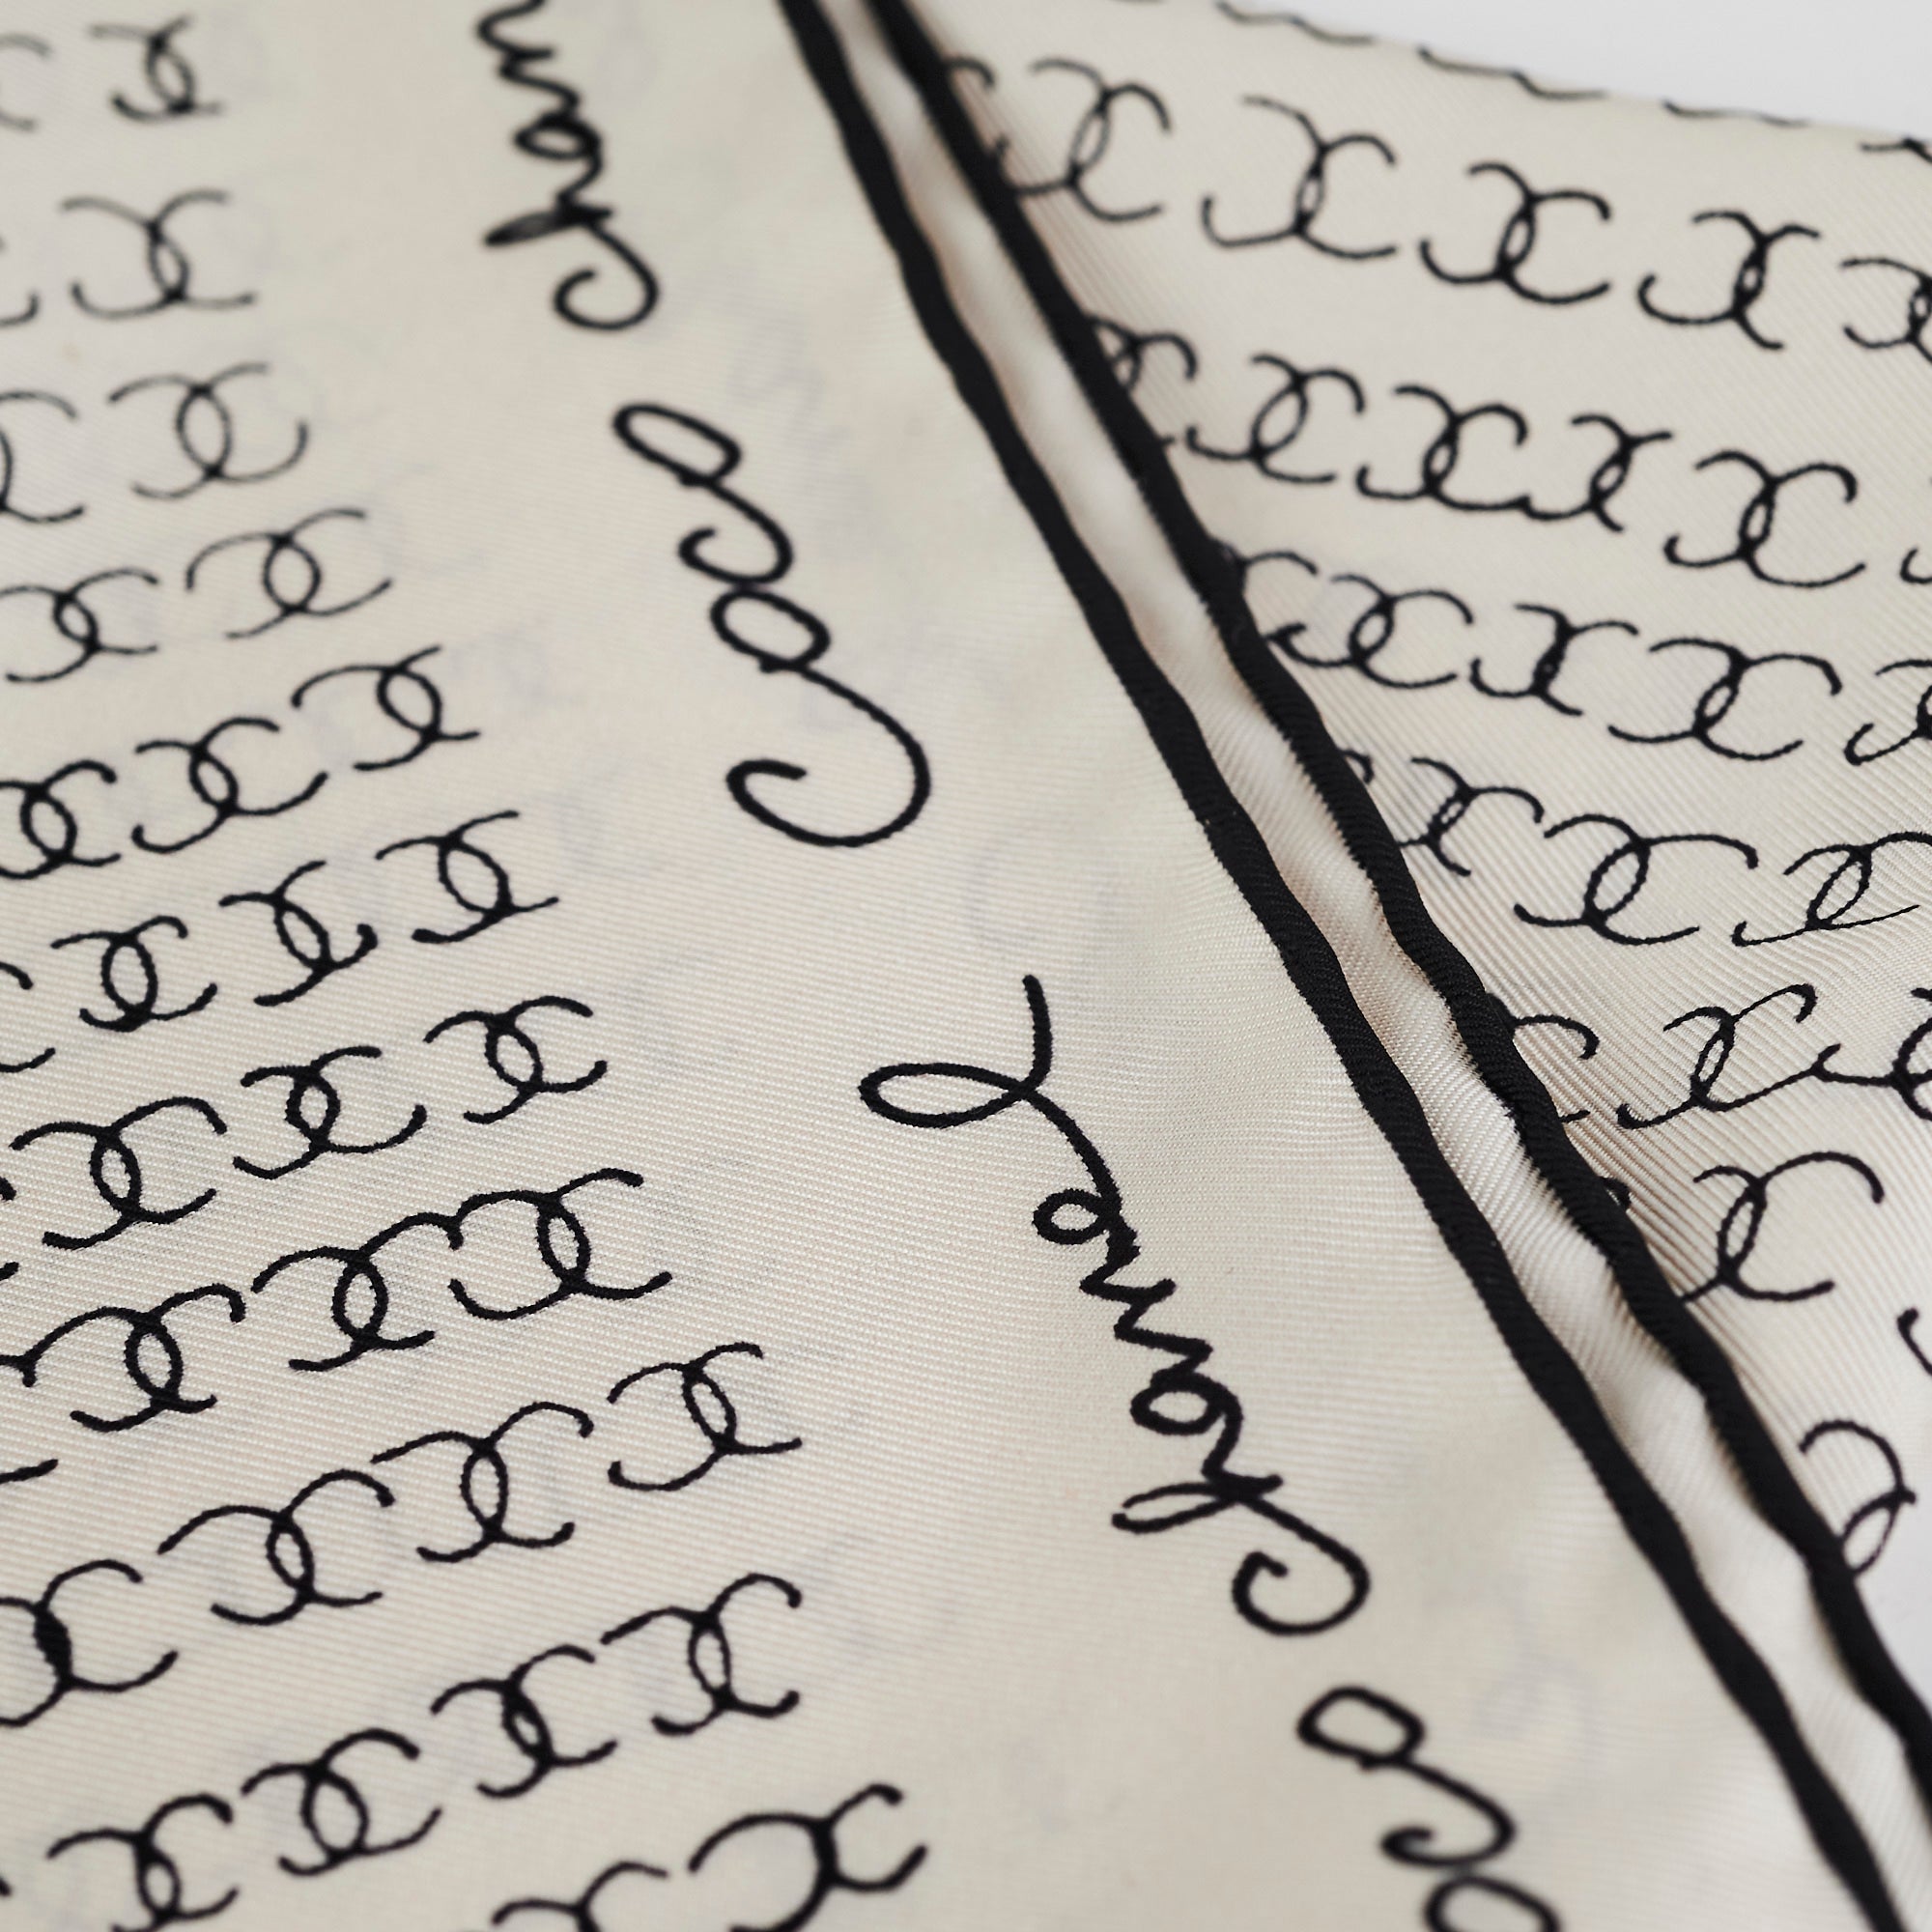 oco Chanel Coco Chan